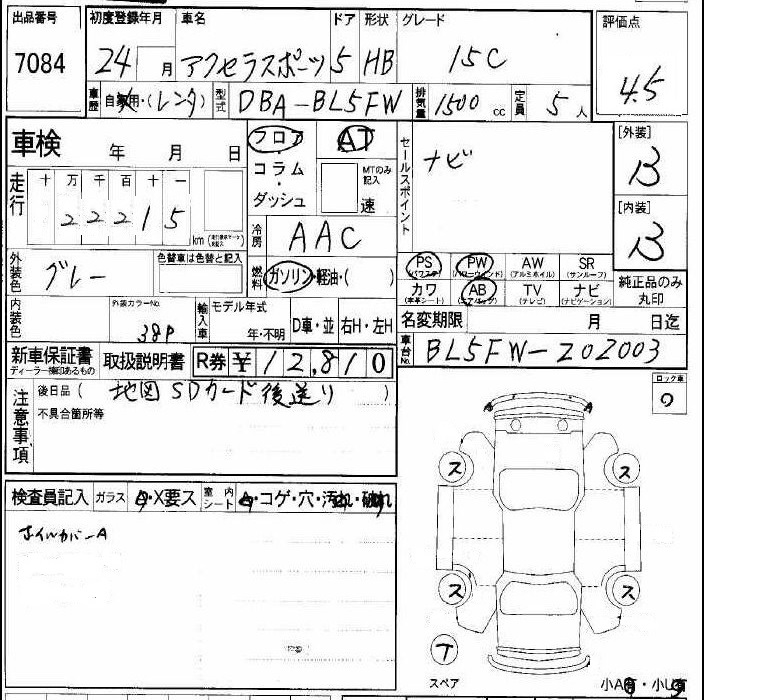 出品番号 初度登録年月 車名 ドア 形状 グレード 評価点
7084 24 月 アクセラスポーツ 5 HB 15C 4.5
車歴 自家用・(レンタ) 型式 DBA-BL5FW 排気量 1500 cc 定員 5 人
車検 年 月 日 フロア AT セールスポイント ナビ [外装] B
走行 十 万 千 百 十 一 コラム・ダッシュ MTのみ記入 速
22215 km [内装] B
冷房 AAC
外装色 グレー 色替車は色替と記入 燃料 ガソリン・軽油・( )
PS (パワステ) PW (パワーウィンド) AW (アルミホイル) SR (サンルーフ) 純正品のみ丸印
カワ (本革シート) AB (エアバック) TV (テレビ) ナビ (ナビゲーション)
内装色 外装カラーNo. 38P 輸入車 モデル年式 年・不明 D車・並 右H・左H
名変期限 月 日迄
新車保証書 ディーラー捺印あるもの 取扱説明書 R券 ¥12,810 車台No. BL5FW-202003
注意事項 後日品 ( 地図SDカード後送り )
不具合箇所等
ロック車 0
検査員記入 ガラス A・X要ス 室内シート A・コゲ・穴・汚れ・破れ
ホイルカバーA
ス ス
ス ス
T
スペア 小A可・小U可